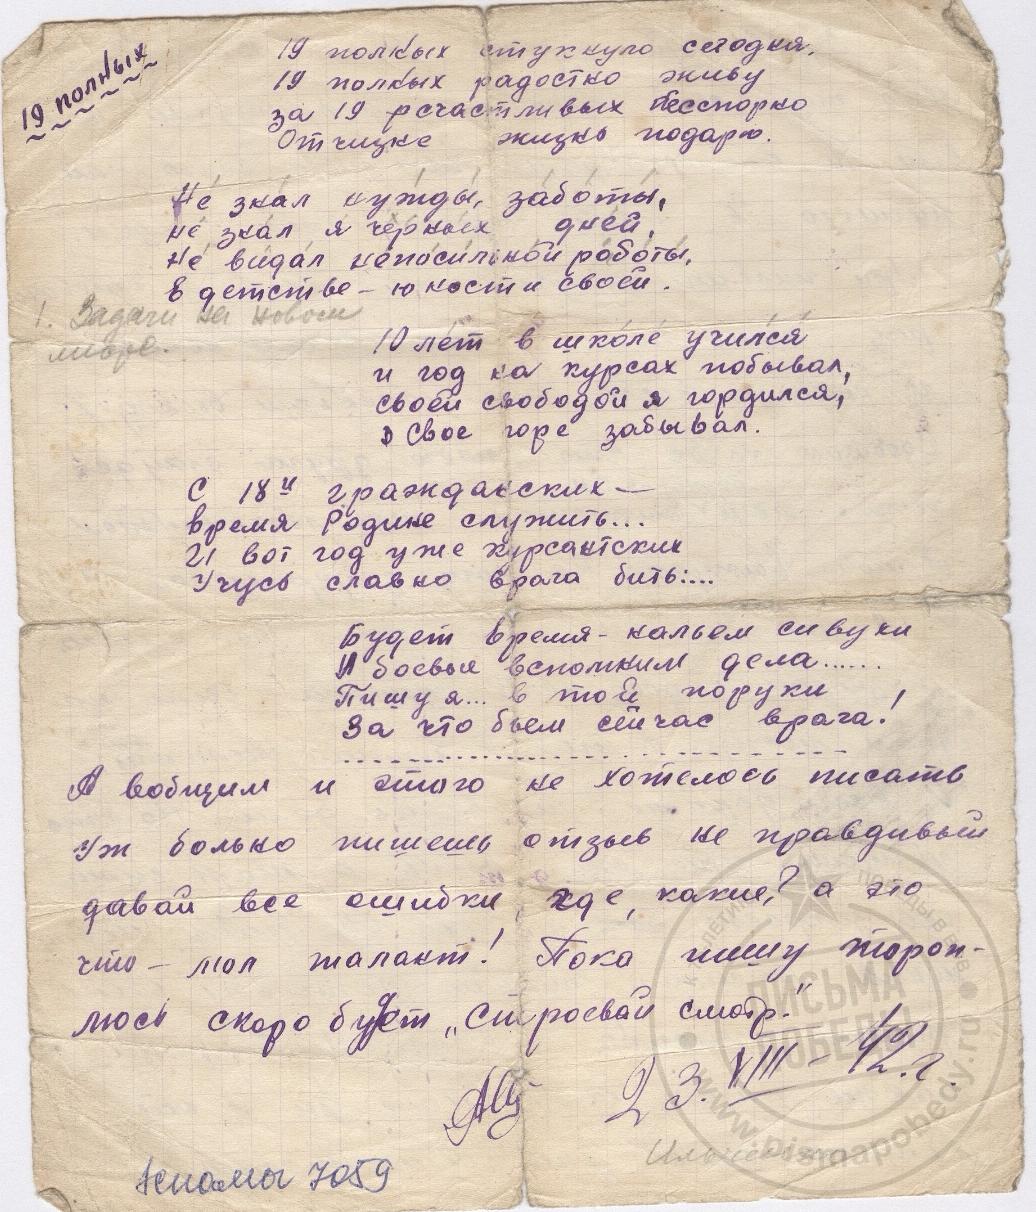 19 полных
19 полных стукнуло сегодня,
19 полных радостно живу
за 19 счастливых бесспорно
Отчизне жизнь подарю.
Не знал нужды, заботы,
не знал я чёрных дней,
Не видал непосильной работы,
В детстве – юности своей.
1. Задачи на новом
10 лет в школе учился
и год на курсах побывал,
своей свободой я гордился,
Свое горе забывал.
С 18и гражданских —
время Родине служить...
И вот год уже курсантских
Учусь славно врага бить:...
Будет время – нальем сивухи
И боевые вспомним дела......
Пишу я... в твои поруки
За что бьем сейчас врага!
А вобщим и этого не хотелось писать
Уж больно пишешь отзыв не правдивый
давай все ошибки где, какие? а это
что – мол талант! Пока пишу тороп-
люсь скоро будет „Строевай смотр."
23. VIII – 42. г.
7059
ПИСЬМА
ПОБЕДЫ
www.pismapobedy.ru